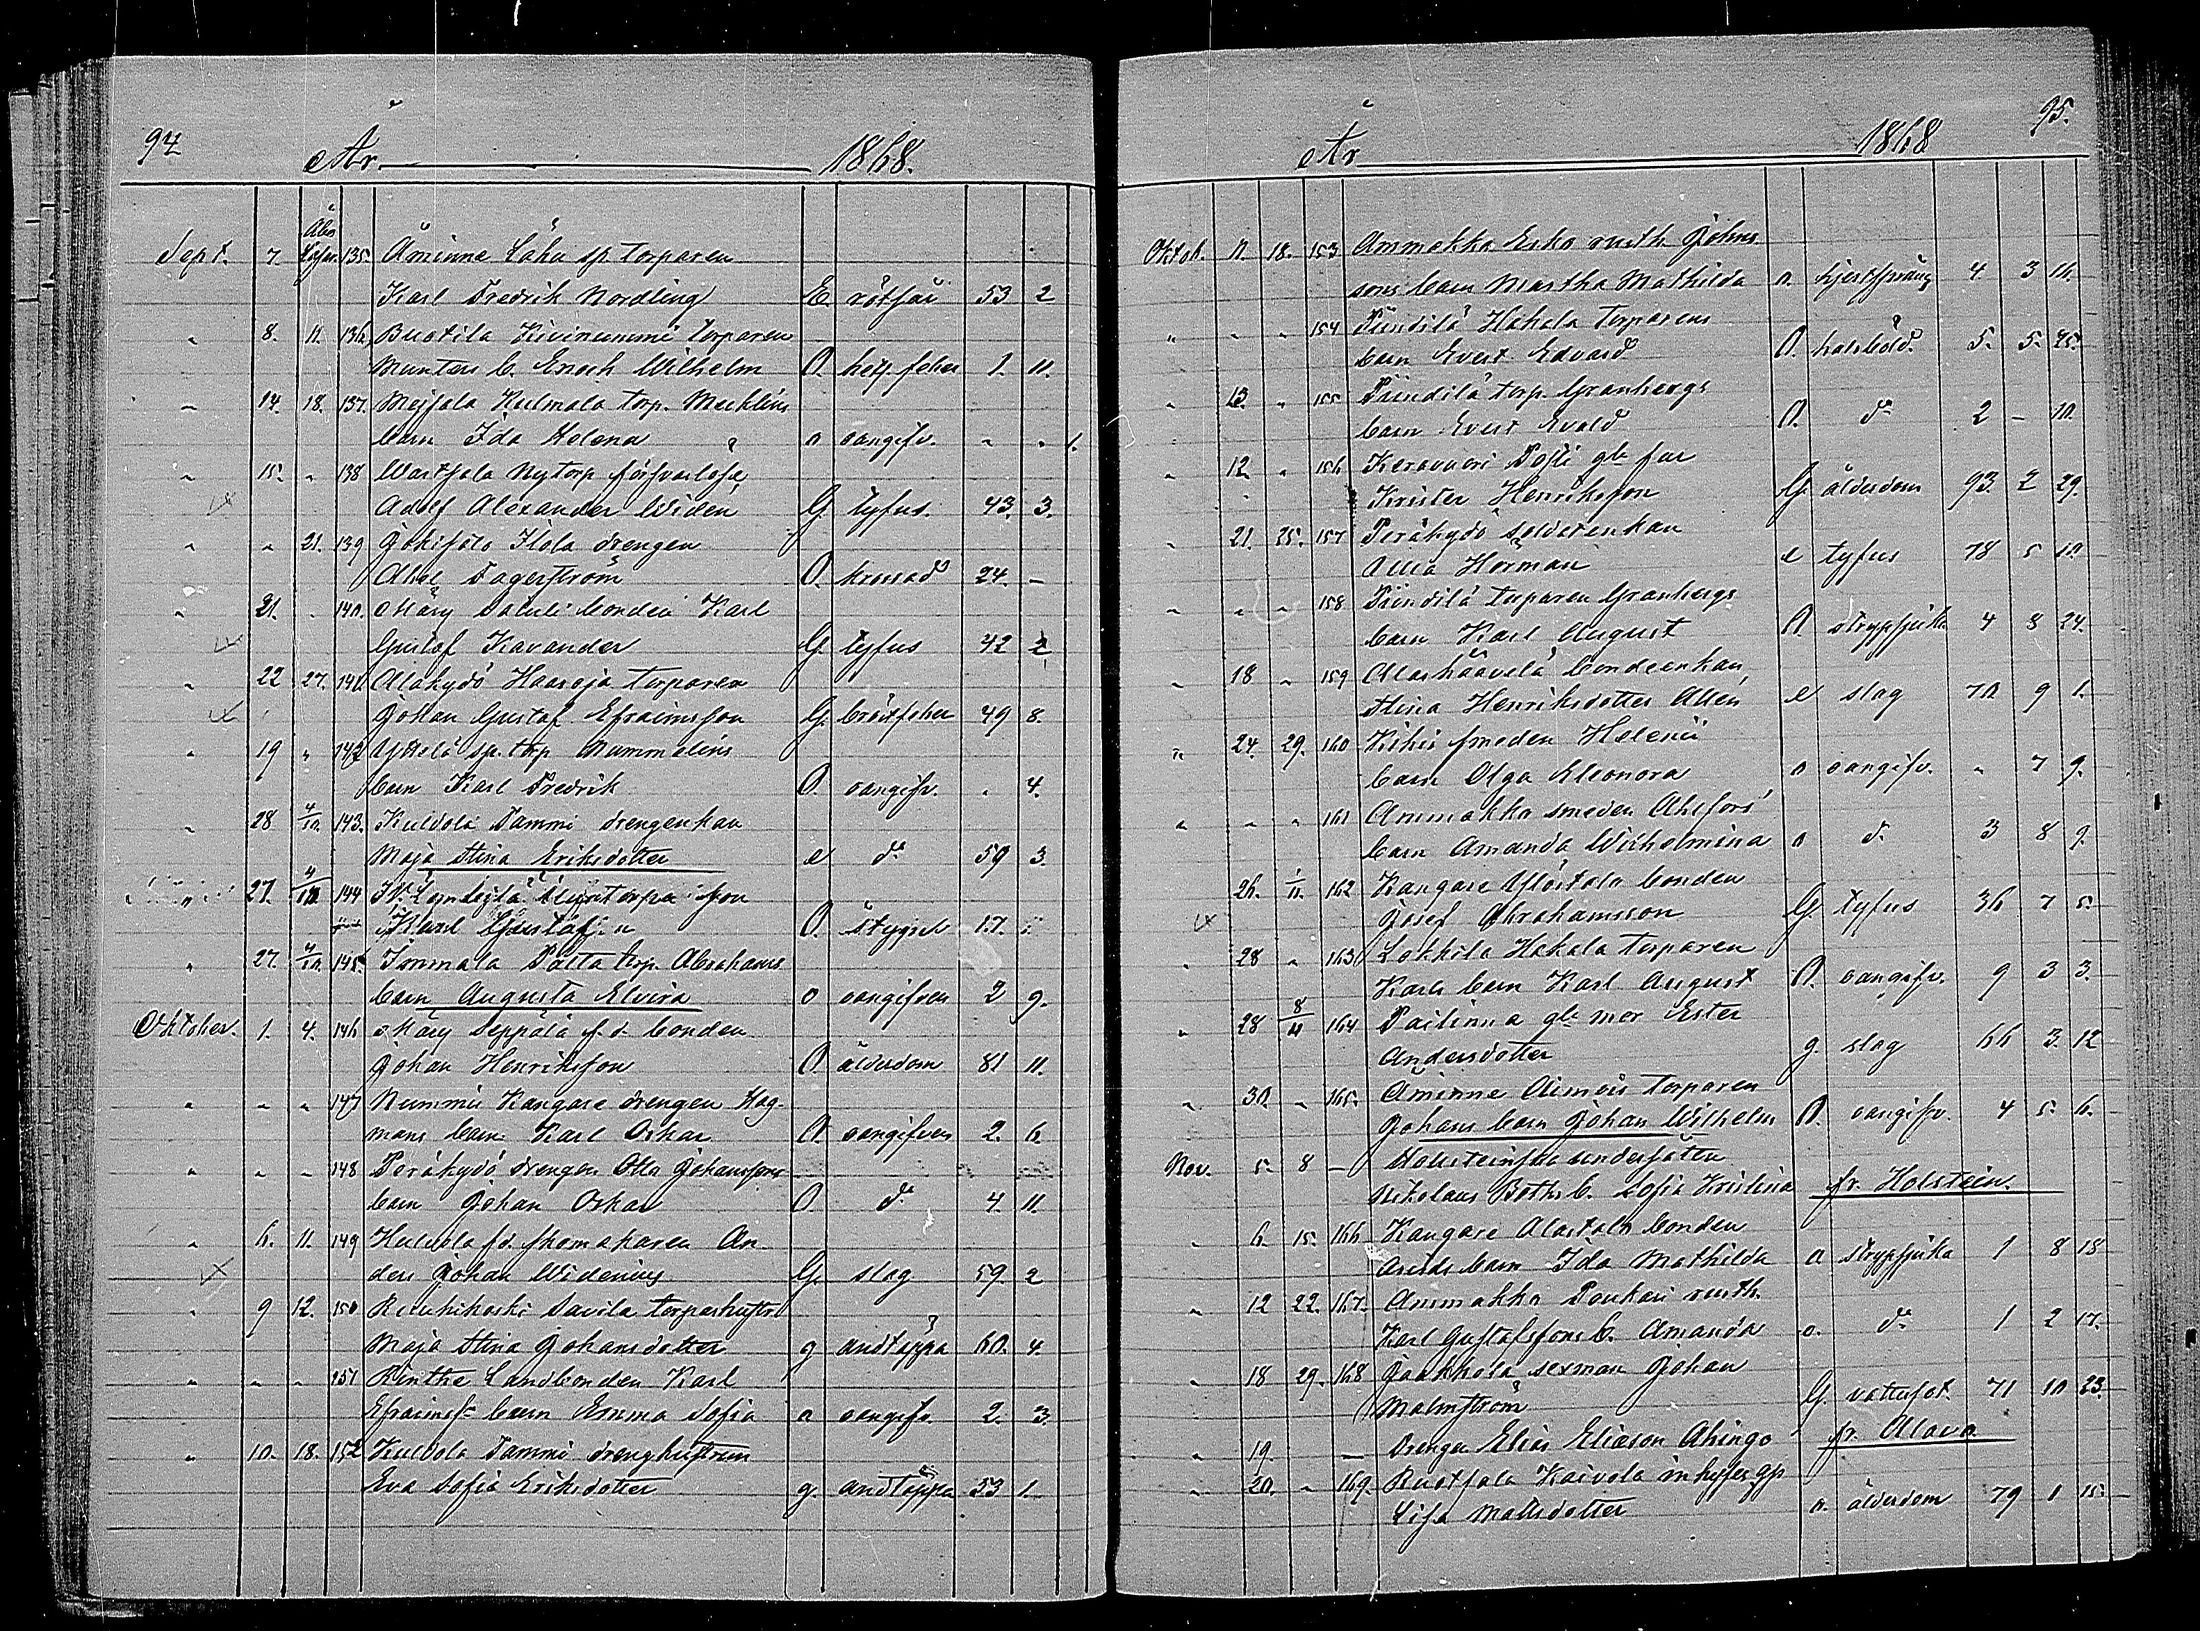 94
År 1868.
Åbo
Sept. 7. 135. Åminne Lähu sp. torparen
Karl Fredrik Nordling E. rötfeb 53 2
" 8. 11. 136. Buotila Kivinummi torparen
Munters b. Enoch Wilhelm O. het. feber 1. 11.
" 14. 18. 137. Kulmala torp. Mecklins
barn Ida Helena o oangifv. " " 1.
" 15. " 138 Nytorp försvarlöse
Adolf Alexander Widen G. tyfus. 43. 3.
" " 21. 139 Ilola drengen
Abel Fagerström O. 24. –
" 21. " 140. Märy bonden Karl
Gustaf Kavander G. tyfus 42 2
" 22 27. 141. Alakydö Haaroja torparen
Johan Gustaf Efraimsson G. bröstfeber 49 8.
" 19 " 142 sp. torp Nummelins
barn Karl Fredrik O. oangifv. " 4.
" 28 4/10. 143. Kulvola Tammi drengenkan
Maja Stina Eriksdotter e do 59 3.
27. 4/10 144 son
Karl Gustaf O. styng 17.
" 27. 4/10. 145. Immala Potta torp. Abrahams
barn Augusta Elvira o oangifven 2 9.
Oktober. 1. 4. 146 Märy Seppälä f.d. bonden
Johan Henriksson O. ålderdom 81 11.
" " " 147 Nummis Kangare drengen Hag-
mans barn Karl Oskar O oangifven 2. 6.
" " " 148 Peräkydö drengen Otto Johanssons
barn Johan Oskar O. do 4. 11.
" 6. 11 149 Kulvola f.d. skomakaren An-
ders Johan Widenius G. slag 59 2
" 9 12. 150 Ruuhikoski Savila torparhustru
Maja Stina Johansdotter g andtäppa 60. 4.
" " " 151 Rinthe Landbonden Karl
Efraimss. barn Emma Sofia o oangifv. 2. 3.
" 10. 18. 152 Kulvola Tammi drenghustrun
Eva Sofia Eriksdotter g. andtäppa 53 1.
95.
År 1868
Oktob. 11. 18. 153 Ammakka Esko rusth. Johns
sons barn Martha Mathilda o. hjertsprång 4 3 16.
" " " 154 Piintilä Hakala torparens
barn Evert Edvard O. halsböld. 5. 5. 25.
" 13. " 155 Piintilä torp. Granbergs
barn Evert Evald O. do 2 – 10.
" 12 " 156 Keravuori gle far
Krister Henriksson G. ålderdom 93. 2 29.
" 21. 25. 157 Peräkydö soldatenkan
Ulla Hörman e tyfus 78 5 10
" " " 158 Piintilä torparen Granbergs
barn Karl August O. strypsjuka 4 8 24.
" 18 " 159 bondeenkan
Stina Henriksdotter e slag 70 9 1.
" 24. 29. 160 Kihis smeden Helenii
barn Olga Eleonora o oangifv. " 7 9.
" " " 161 Ammakka smeden Ahlfors
barn Amanda Wilhelmina o do 3 8 9.
" 26. 1/11. 162 Kangare Yliöstalo bonden
Josef Abrahamsson G. tyfus 36 7 5.
" 28 " 163 Lokkila Hakala torparen
Karls barn Karl August O. oangifv. 9 3 3.
" 28 8/11 164 Pailinna gla mor Ester
Andersdotter g. slag 66 3. 12
" 30. " 165. Åminne torparen
Johans barn Johan Wilhelm O. oangifv. 4 5. 6.
Nov. 5. 8 – Holsteinska undersåten
Nikolaus Boths b. Sofia Kristina fr. Holstein.
" 6. 15. 166 Kangare Alastalo bonden
barn Ida Mathilda o strypsjuka 1 8 18
" 12 22. 167. Ammakka Poukari rusth.
Karl Gustafssons b. Amanda o. do 1 2 17.
" 18 29. 168 Jaakkola sexman Johan
Malmström G. vattusot 71 10 23.
" 19. – Drengen Elias Eliasson Ahingo fr. Alavo
" 20. " 169. Kaivola inhyses gp
Lisa Mattsdotter o. ålderdom 79 1 15.